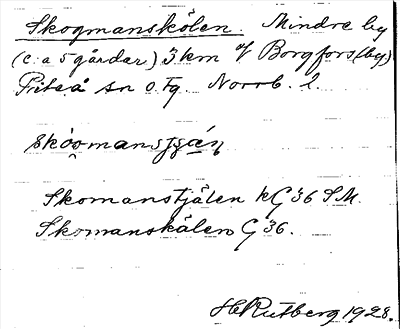 Skogmanskölen. Mindre by
(c:a 5 gårdar) 3 km V Borgfors (by)
Piteå sn o. tg. Norrb. l.
Skomanstjälen KG 36 SM.
Skomanskälen G 36.
H Rutberg 1928.